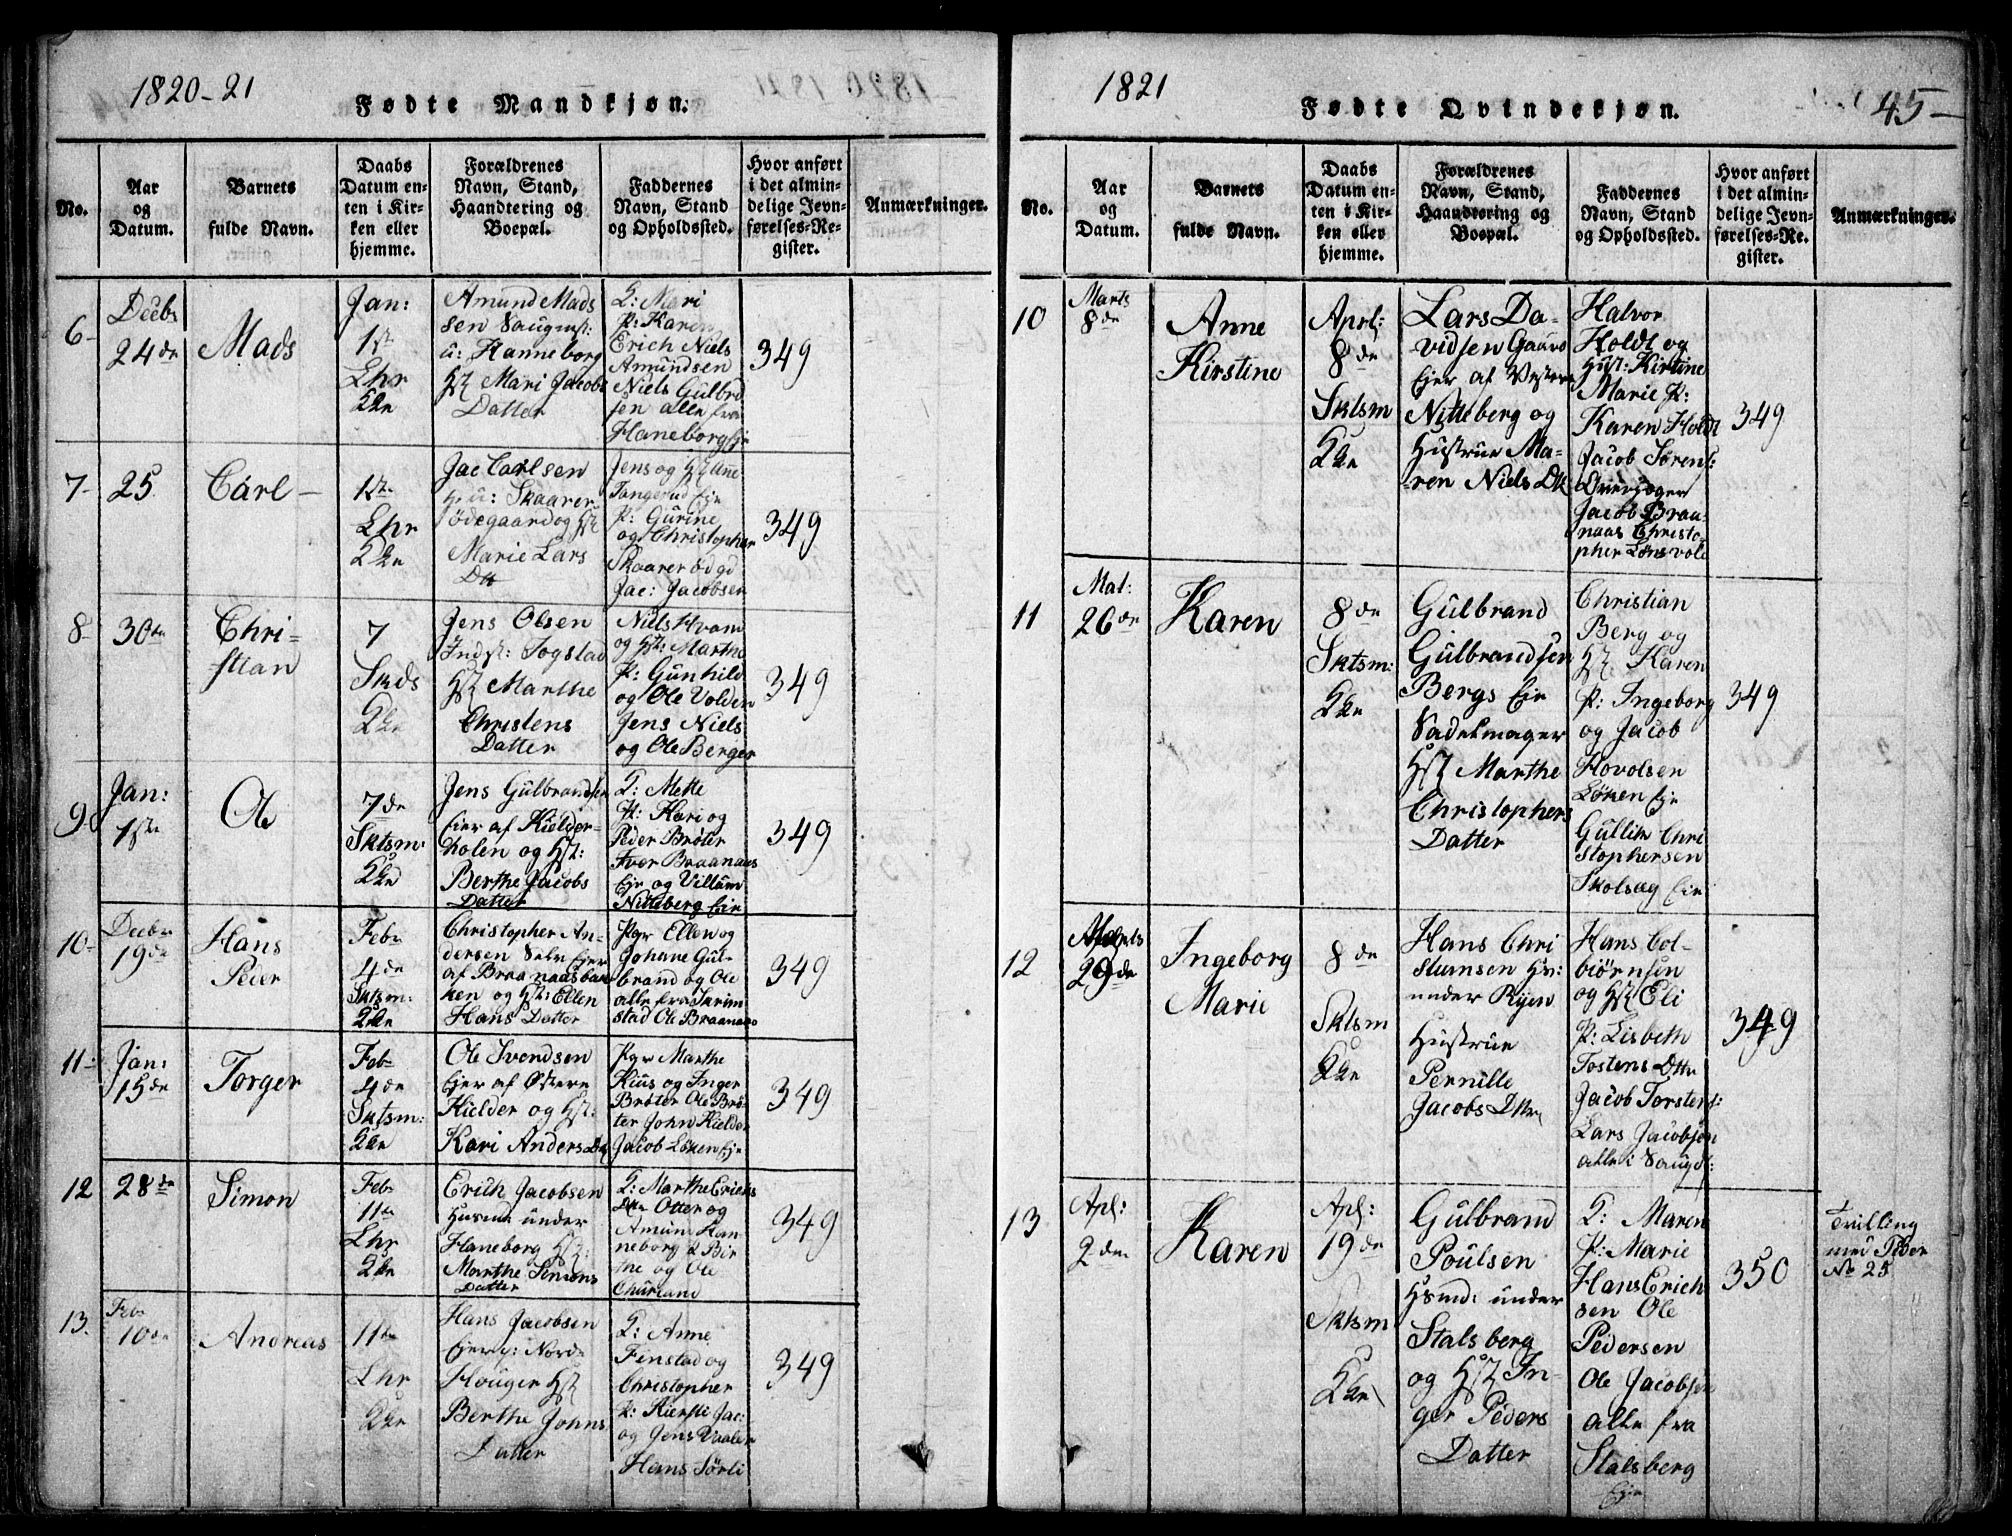 1820-21
Fødte Mandkjøn.
No.
Aar
og
Datum.
Barnets
fulde Navn.
Daabs
Datum en-
ten i Kir-
ken eller
hjemme.
Forældrenes
Navn, Stand,
Haandtering og
Boepæl.
Faddernes
Navn, Stand
og Opholdssted.
Hvor anført
i det almin-
delige Jevn-
førelses-Re-
gister.
Anmærkninger.
6
Decbr
24de
Mads
Jan:
1ste
Lhr
Amund Mads
sen
u: Hanneborg
Mari Jacobs
Datter
Q: Mari
P: Karen
Erich Niels
Amundsen
Niels Gulbrd
sen alle fra
Haneborg Eje
349
7-
25
Carl-
1ste
Lhr
Jac Carlsen
u: Skaarer
ødegaard og
Marie Lars
Jens og
Tangerud Eje
P: Gurine
og Christopher
Skaarer ødgd
Jac: Jacobsen
349
8-
30te
Chri-
stian
7
Skds
Jens Olsen
Indst: Togstad
Marthe
Christens
Datter
Niels Hvam
og Hst: Marthe
P: Gunhild
og Ole Volden
Jens Niels
og Ole Berger
349
9
Jan:
1ste
Ole
7de
Sktsm:
Jens Gulbrandsen
Eier af Kielder-
holen og Hst:
Berthe Jacobs
Datter
Q: Mette
P: Kari og
Peder Brøter
Iver Braanaas
Eje og Villum
Nitteberg Eje
349
10-
Decbr
19de
Hans
Peder
Febr
4de
Sktsm:
Christopher An-
dersen Selv Ejer
af Braanaasbak
ken og Hst: Ellen
Hans Datter
Pger Ellen og
Johane Gul-
brand og Ole
alle fra
stad Ole Braanaas
349
11-
Jan:
15de
Torger
Feb
4de
Sktsm:
Ole Svendsen
Ejer af Østere
Kielder og Hst:
Kari Anders
Pger Marthe
Kiuus og Inger
Brøter Ole Brø-
ter John Kielder
Jacob Løken Eje
349
12
28de
Simon
Feb
11te
Lhr
Erich Jacobsen
Husmd under
Haneborg Hst:
Marthe Simons
Datter
Q: Marthe Erichs
Dtr Otter og
Amund Han-
neborg P Bir
the og Ole
349
13.
Feb
10de
Andreas
11te
Lhr
Hans Jacobsen
Ejer p: Nordr
Houger
Berthe Johns
Datter
Q: Anne
Finstad og
Christopher
P: Kiersti Jac:
og Jens Vaaler
Hans Sørli
349
1821
Fødte Qvindekjøn.
45-
No.
Aar
og
Datum.
Barnets
fulde Navn.
Daabs
Datum en-
ten i Kir-
ken eller
hjemme.
Forældrenes
Navn, Stand,
Haandtering og
Boepæl.
Faddernes
Navn, Stand
og Opholdssted.
Hvor anført
i det almin-
delige Jevn-
førelses-Re-
gister.
Anmærkninger.
10
Marts
8de
Anne
Kirstine
Aprl:
8de
Sktsm
Lars Da-
vidsen Gaard
Ejer af Vestere
Nitteberg og
Hustrue Ma-
ren Niels Dtr
Halvor
Holdt og
Hust: Kirstine
Marie P:
Karen Holdt
Jacob Sørens:
Jacob Braa-
naas Christo
pher Lønsvole
349
11
Mat:
26de
Karen
8de
Sktsm:
Gulbrand
Gulbrandsen
Bergs Eje
Sadelmager
Marthe
Christophers
Datter
Christian
Berg og
Karen
P: Ingeborg
og Jacob
Hovolsen
Løken Eje
Gullik Chri
stophersen
Skolsæg Eje
349
12
29de
Ingeborg
Marie
8de
Sktsm
Hans Chri
stiansen
under Ryen
Hustrue
Pernille
Jacobs Dtr
Hans Col-
biørnsen
og Hst Eli
P: Lisbeth
Tostens Dtr
Jacob Torstens:
Lars Jacobsen
alle i Saugd:
349
13
Apl:
2den
Karen
Apl:
19de
Sktsm
Gulbrand
Poulsen
Hsmd: under
Stalsberg
og Hst In-
ger Peders
Datter
Q: Maren
P: Marie
Hans Erich
sen Ole
Pedersen
Ole Jacobsen
alle fra
Stalsberg
Eje
350
Tvilling
med Peder
No 25